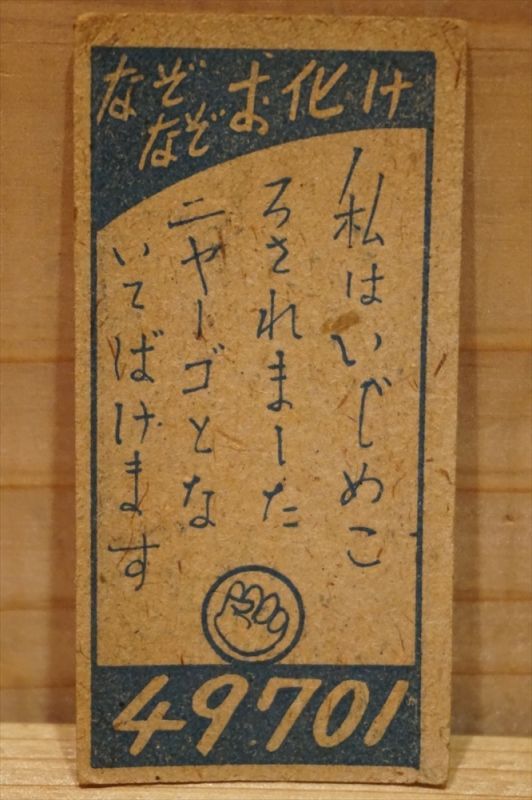 なぞなぞお化け
私はいじめこ
ろされました
ニヤーゴとな
いてばけます
49701